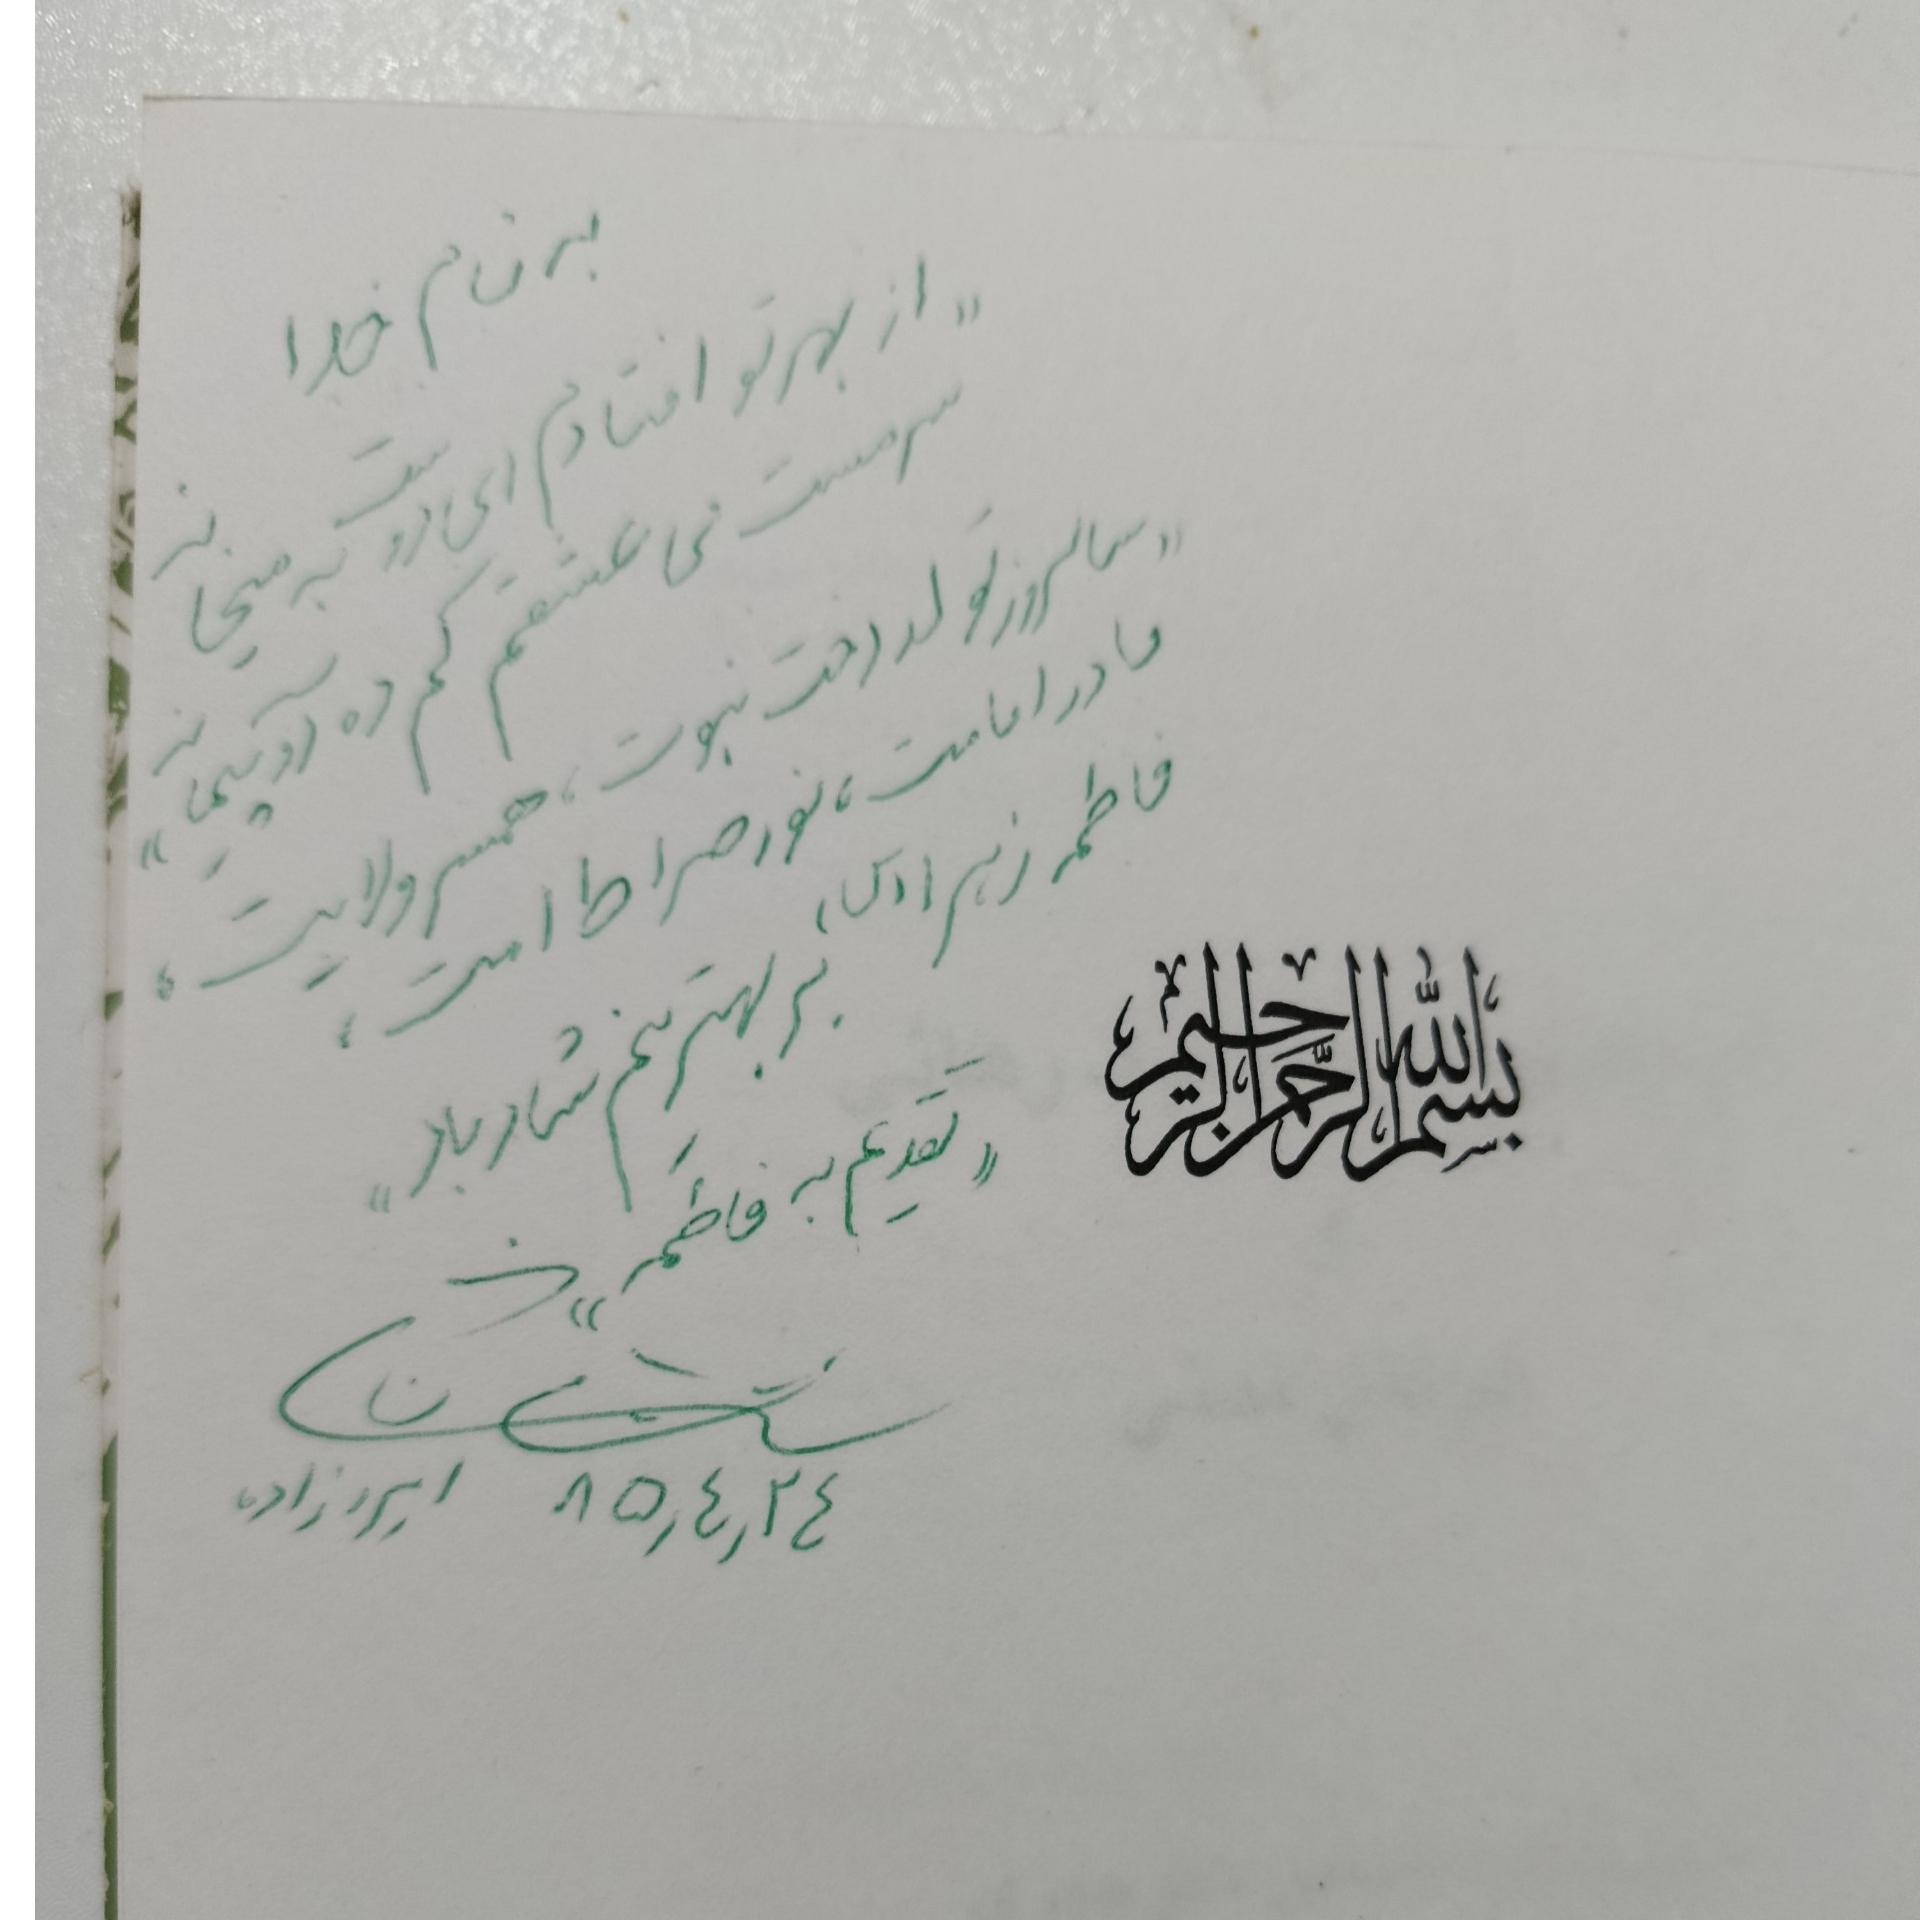 به نام خدا
«از بهر تو افتادم ای دوست به میخانه
سرمست می عشقم کم ده دو پیمانه»
«سالروز تولد دخت نبوت، همسر ولایت،
مادر امامت، نور صراط امت،
فاطمه زهرا (س)
بر بهترینم شاد باد»
«تقدیم به فاطمه»
۸۵٫٤٫۲٤ امیرزاده
بسم الله الرحمن الرحیم